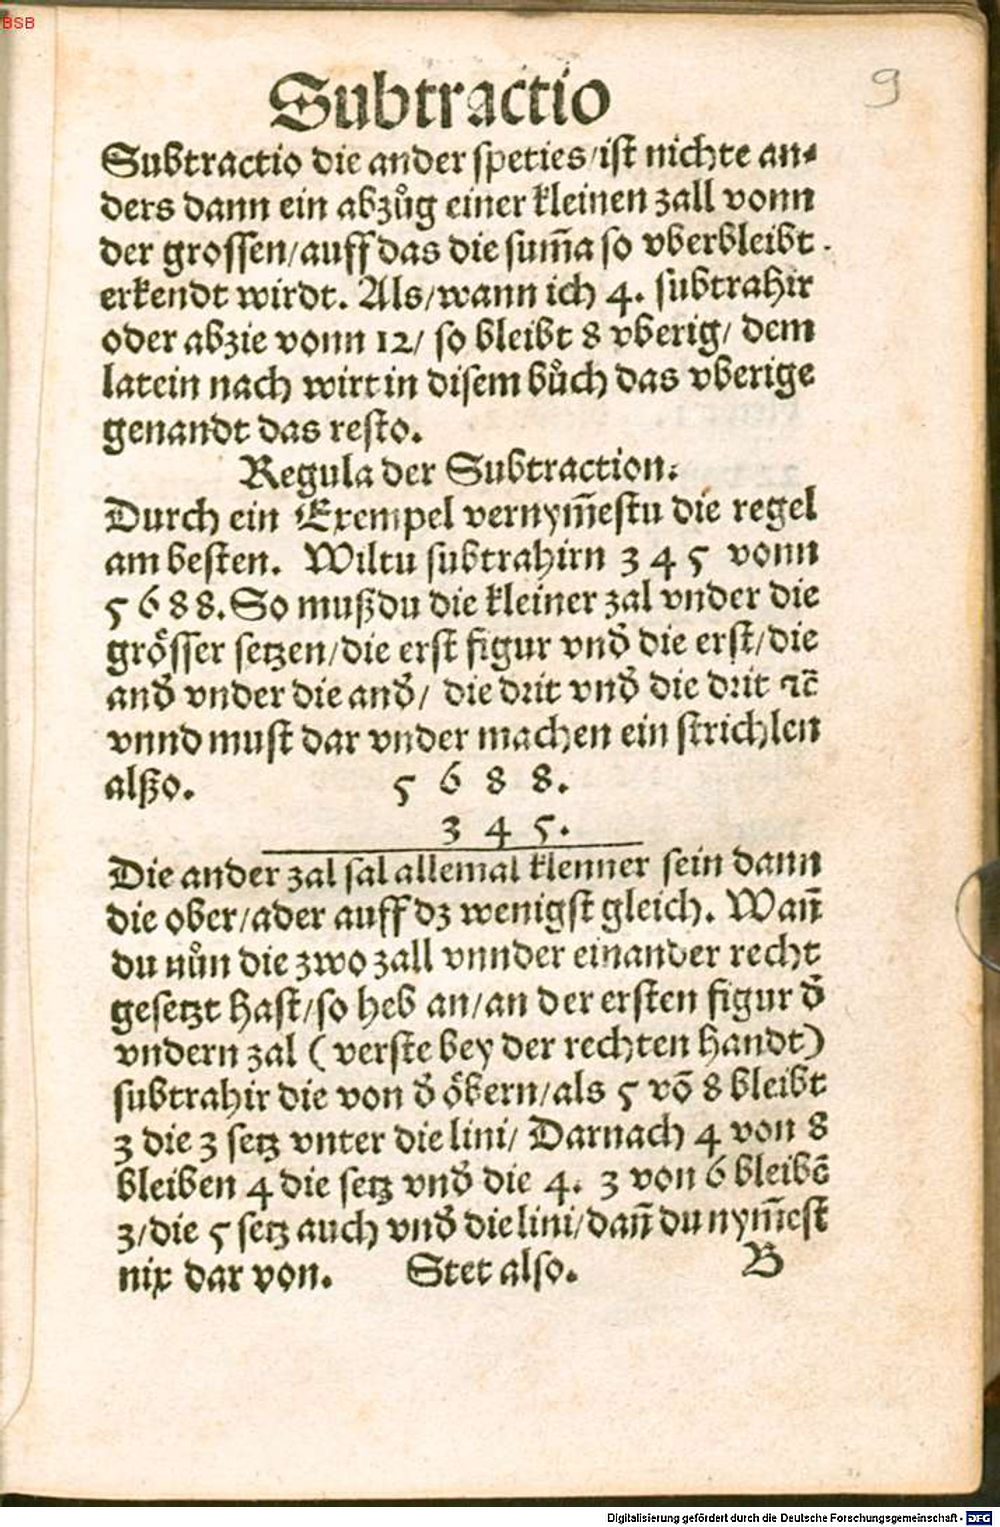 BSB
9
Subtractio
Subtractio die ander speties/ist nichte an⸗
ders dann ein abzůg einer kleinen zall vonn
der grossen/auff das die sum̄a so vberbleibt
erkendt wirdt. Als/wann ich 4. subtrahir
oder abzie vonn 12/ so bleibt 8 vberig/ dem
latein nach wirt in disem bůch das vberige
genandt das resto.
Regula der Subtraction.
Durch ein Exempel vernym̄estu die regel
am besten. Wiltu subtrahirn 3 4 5 vonn
5 6 8 8. So mußdu die kleiner zal vnder die
grösser setzen/die erst figur vnd̕ die erst/die
and̕ vnder die and̕/ die drit vnd̕ die drit ꝛc̄
vnnd must dar vnder machen ein strichlen
alßo. 5 6 8 8.
3 4 5.
Die ander zal sal allemal klenner sein dann
die ober/ader auff dz wenigst gleich. Wan̄
du nůn die zwo zall vnnder einander recht
gesetzt hast/so heb an/an der ersten figur d̕
vndern zal (verste bey der rechten handt)
subtrahir die von d̕ öbern/als 5 vō 8 bleibt
3 die 3 setz vnter die lini/ Darnach 4 von 8
bleiben 4 die setz vnd̕ die 4. 3 von 6 bleibē
3/die 5 setz auch vnd̕ die lini/dan̄ du nym̄est
nix dar von. Stet also. B
Digitalisierung gefördert durch die Deutsche Forschungsgemeinschaft - DFG